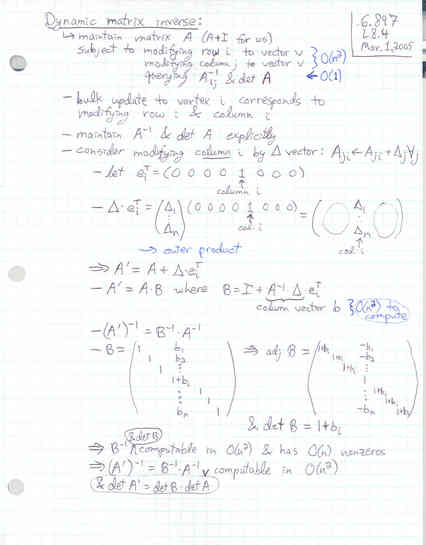 Dynamic matrix inverse:
6.897
L8.4
Mar. 1, 2005
↳ maintain matrix A (A+I for us)
subject to modifying row i to vector v
modifying column j to vector v } O(n²)
querying A⁻¹ᵢⱼ & det A ← O(1)
– bulk update to vertex i corresponds to
modifying row i & column i
– maintain A⁻¹ & det A explicitly
– consider modifying column i by Δ vector: Aⱼᵢ ← Aⱼᵢ + Δⱼ ∀j
– let eᵢᵀ = (0 0 0 0 1 0 0 0)
column i
– Δ·eᵢᵀ = (Δ₁ ⋮ Δₙ) (0 0 0 0 1 0 0 0) = (0 Δ₁ ⋮ Δₙ 0)
col. i col. i
→ outer product
⇒ A' = A + Δ·eᵢᵀ
– A' = A·B where B = I + A⁻¹·Δ·eᵢᵀ
column vector b } O(n²) to compute
– (A')⁻¹ = B⁻¹·A⁻¹
– B = (1 1 1 b₁ b₂ ⋮ 1+bᵢ ⋮ bₙ 1 1 1) ⇒ adj B = (1+bᵢ 1+bᵢ 1+bᵢ -b₁ -b₂ ⋮ 1 ⋮ -bₙ 1+bᵢ 1+bᵢ 1+bᵢ)
& det B = 1+bᵢ
& det B
⇒ B⁻¹ ^ computable in O(n²) & has O(n) nonzeros
⇒ (A')⁻¹ = B⁻¹·A⁻¹ computable in O(n²)
& det A' = det B·det A